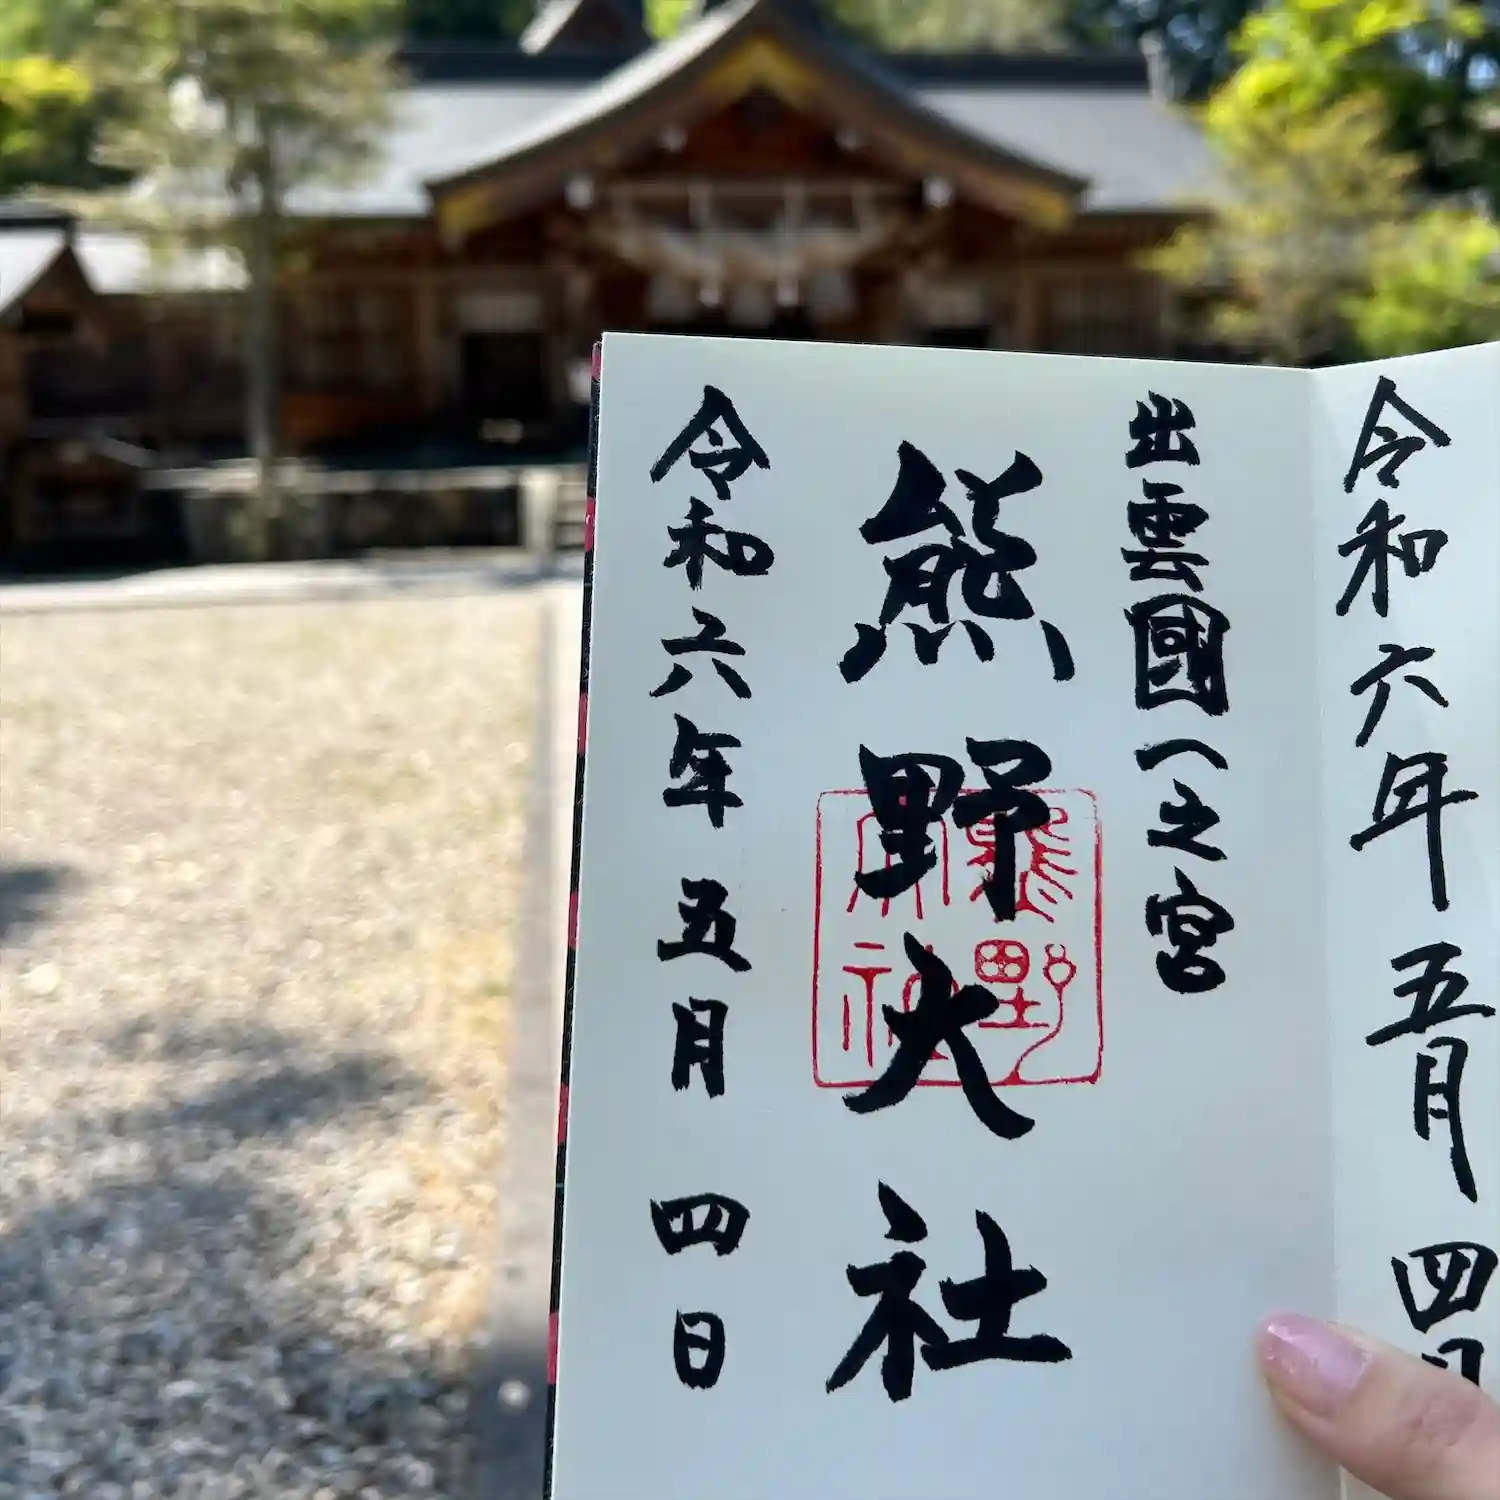 令和六年 五月 四日
出雲國一之宮
熊野大社
熊野大社
令和六年 五月 四日